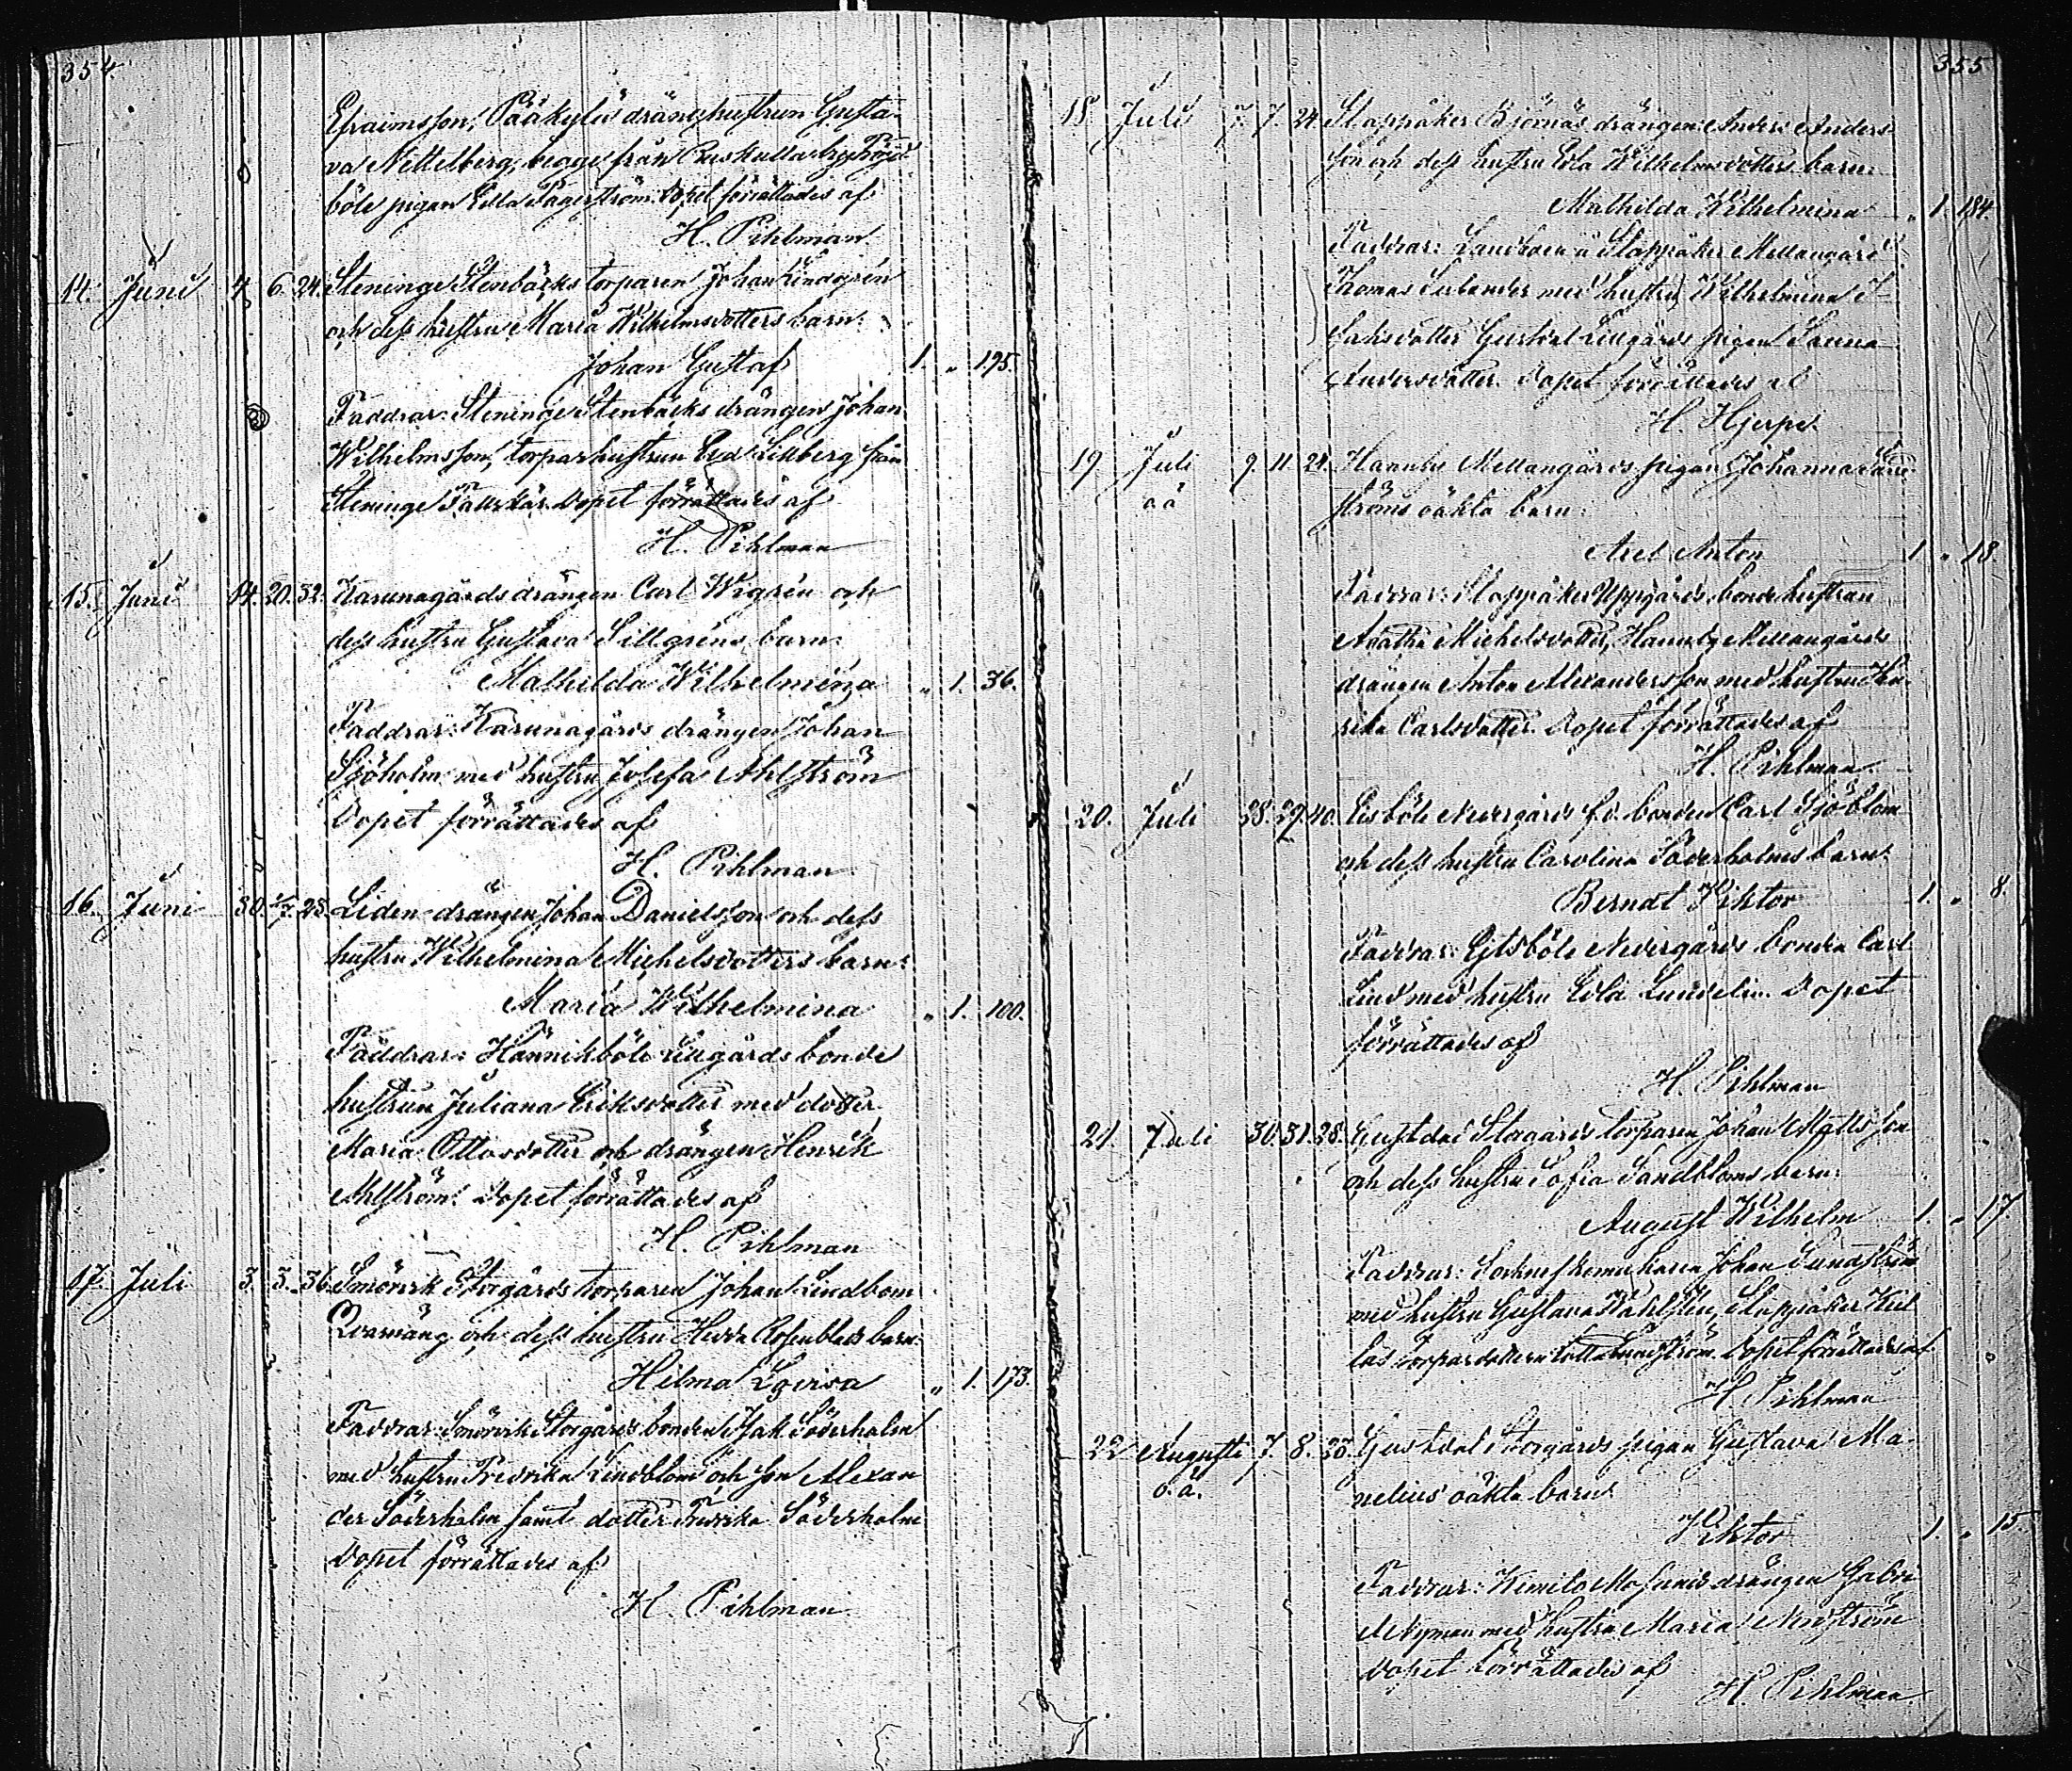 354.
Efraimsson, Pääkylä dränghustrun Gusta-
va Nettelberg, begge från Ruskulla by, Röjd-
böle pigan Edla Fagerström. Dopet förrättades af
H. Pihlman.
14. Juni 4. 6. 24. Steninge Stenbäcks torparen Johan Lindgrén
och dess hustru Maria Wilhelmsdotters barn:
Johan Gustaf 1. „ 195.
Faddrar: Steninge Stenbäcks drängen Johan
Wilhelmsson, torparhustrun Eva Lillberg från
Steninge Dopet förrättades af
H. Pihlman
15. Juni 14. 20. 32. Karunagårds drängen Carl Wigrén och
dess hustru Gustava Sillgréns barn:
Mathilda Wilhelmina „ 1. 36.
Faddrar: Karunagårds drängen Johan
Sjöholm med hustru Josefa Ahlström
Dopet förrättades af
H. Pihlman
16. Juni 30. 2/7. 28. Liden drängen Johan Danielsson och dess
hustru Wilhelmina Michelsdotters barn:
Maria Wilhelmina „ 1. 100.
Faddrar: Hännikböle Lillgårds bonde
hustrun Juliana Eriksdotter med dotter
Maria Ottosdotter och drängen Henrik
Ahlström. Dopet förrättades af
H. Pihlman
17. Juli 3. 5. 36. Smörvik Storgårds torparen Johan Lindbom
och dess hustru Hedda Rosenblads barn:
Hilma Lovisa „ 1. 173.
Faddrar: Smörvik Storgårds bonden Isak Söderholm
med hustru Fredrika Lindblom och son Alexan
der Söderholm samt dotter Fredrika Söderholm
Dopet förrättades af
H. Pihlman
355
18. Juli 7. 7. 24. Slappåker Björnäs drängen Anders Anders
son och dess hustru Edla Wilhelmsdotters barn:
Mathilda Wilhelmina „ 1. 184.
Faddrar: Landboen å Slappåker Mellangård
Thomas med hustru Wilhelmina I-
saksdotter Gustdal Lillgårds pigan Sanna
Andersdotter. Dopet förrättades af
H. Hjerpe.
19. Juli 9. 11. 24. Hannby Mellangårds pigan Johanna
oä ströms oäkta barn:
Axel Anton 1 „ 18.
Faddrar: Slappåker Uppgårds bonde hustrun
Agatha Michelsdotter, Hannby Mellangårds
drängen Anton Alexandersson med hustru Hen-
rika Carlsdotter. Dopet förrättades af
H. Pihlman
20. Juli 28. 29. 40. böle Nedergårds f.d. bonden Carl Sjöblom
och dess hustru Carolina Söderholms barn:
Berndt Viktor 1. „ 8.
Faddrar: böle Nedergårds bonden Carl
Lind med hustru Edla Lundelin. Dopet
förrättades af
H. Pihlman
21. Juli 30. 31. 28. Gustdal Storgårds torparen Johan Mattsson
och dess hustru Sofia Sandbloms barn:
August Wilhelm 1. „ 17.
Faddrar: Sockneskomakaren Johan Sundström
med hustru Gustava Wahlsten, Slappåker
torpardottern Lotta Dopet förrättades af
H. Pihlman
22 Augusti 7. 8. 23. Gustdal Storgårds pigan Gustava Ma-
o.ä. nelius' oäkta barn:
Viktor 1 „ 15.
Faddrar: Kimito drängen Gabri
el Nyman med hustru Maria Nordström
Dopet förrättades af
H. Pihlman